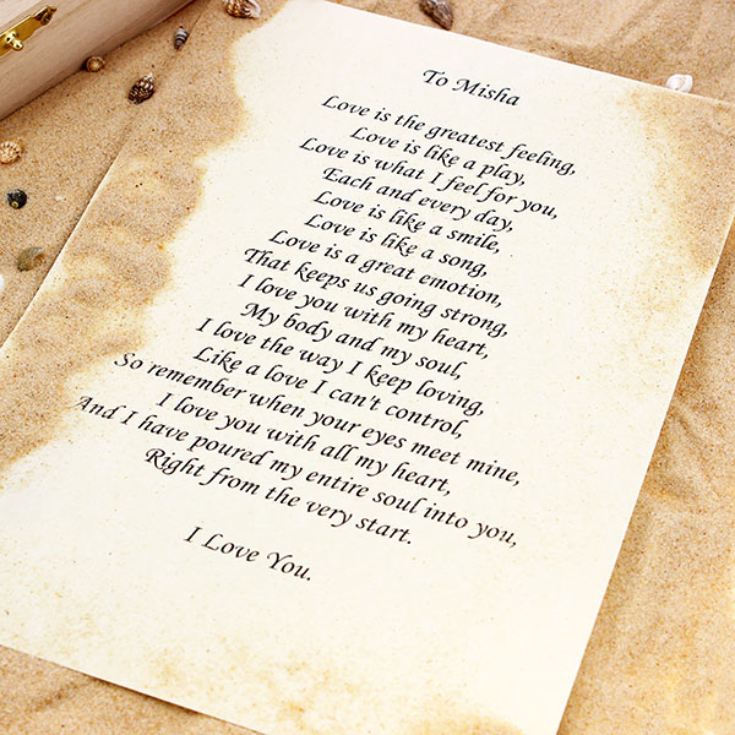 To Misha
Love is the greatest feeling,
Love is like a play,
Love is what I feel for you,
Each and every day,
Love is like a smile,
Love is like a song,
Love is a great emotion,
That keeps us going strong,
I love you with my heart,
My body and my soul,
I love the way I keep loving,
Like a love I can't control,
So remember when your eyes meet mine,
I love you with all my heart,
And I have poured my entire soul into you,
Right from the very start.
I Love You.